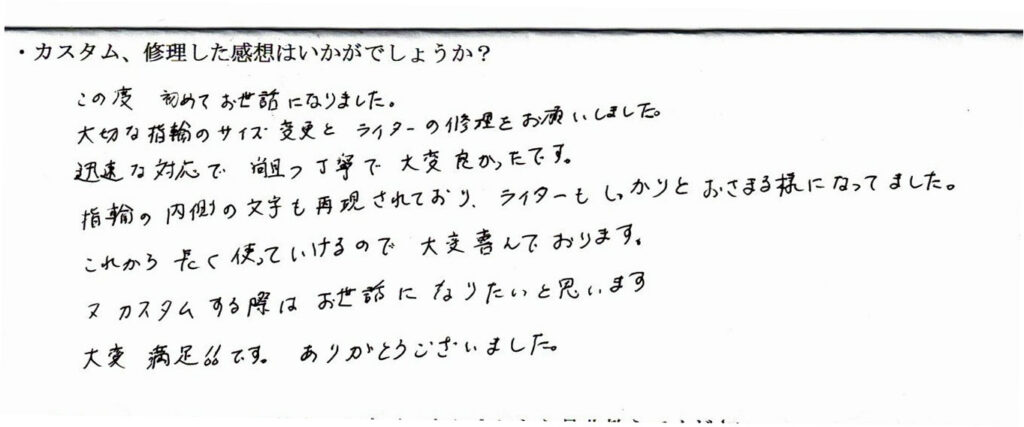 ・カスタム、修理した感想はいかがでしょうか？
この度 初めてお世話になりました。
大切な指輪のサイズ変更と ライターの修理をお願いしました。
迅速な対応で 且つ丁寧で 大変良かったです。
指輪の内側の文字も再現されており、ライターもしっかりとおさまる様になってました。
これから長く使っていけるので 大変喜んでおります。
又カスタムする際はお世話になりたいと思います
大変 満足!!です。 ありがとうございました。